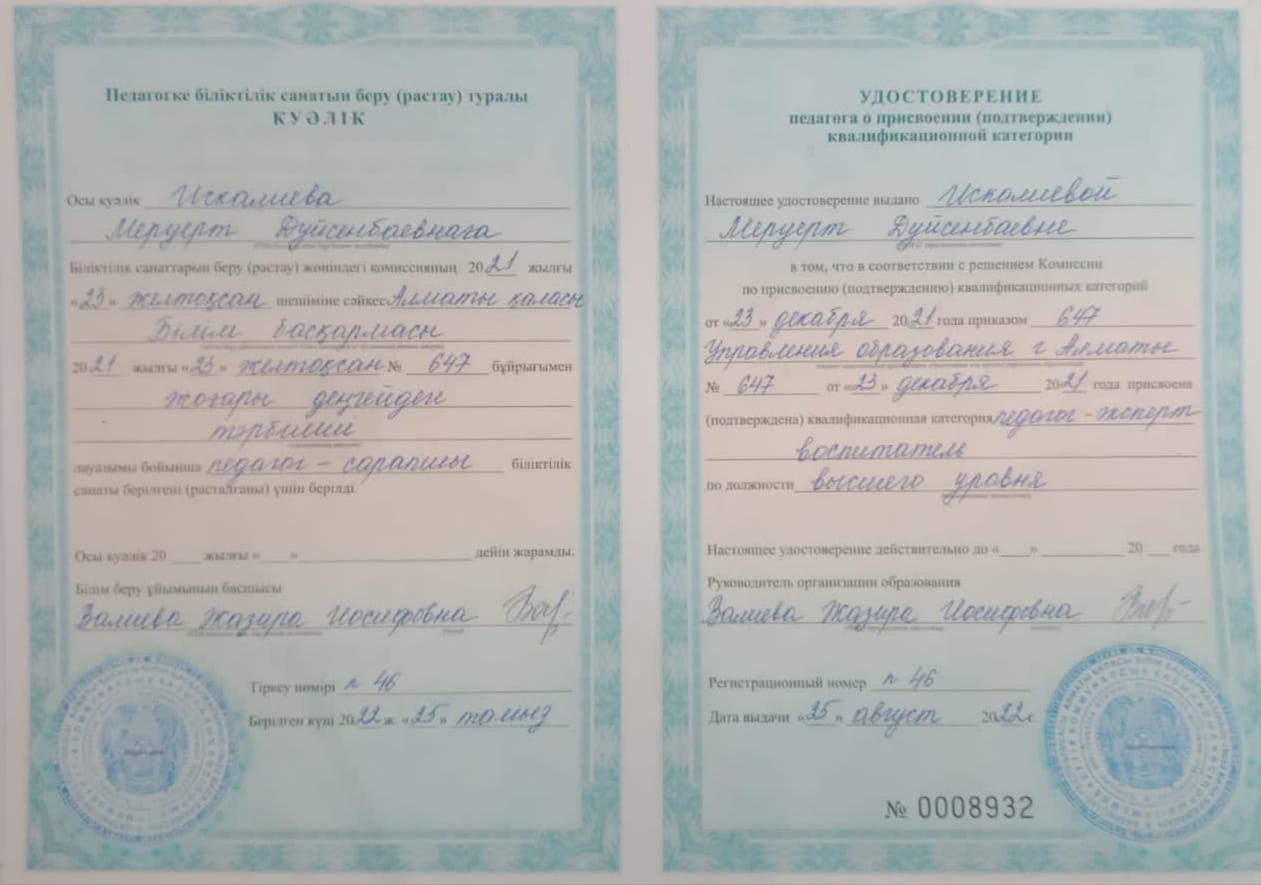 Педагогке біліктілік санатын беру (растау) туралы
КУӘЛІК
Осы куәлік Искалиева
Меруерт Дуйсенбаевнаға
Біліктілік санаттарын беру (растау) жөніндегі комиссияның 2021 жылғы
«23» желтоқсан шешіміне сәйкес Алматы қаласы
Білім басқармасы
2021 жылғы «23» желтоқсан № 647 бұйрығымен
жоғары деңгейден
тәрбиеші
лауазымы бойынша педагог – сарапшы біліктілік
санаты берілгені (расталғаны) үшін берілді.
Осы куәлік 20 ___ жылғы «___» ___ дейін жарамды.
Білім беру ұйымының басшысы
Валиева Жазира Иосифовна
Тіркеу нөмірі № 46
Берілген күні 2022 ж. «25» тамыз
УДОСТОВЕРЕНИЕ
педагога о присвоении (подтверждении)
квалификационной категории
Настоящее удостоверение выдано Искалиевой
Меруерт Дуйсенбаевне
в том, что в соответствии с решением Комиссии
по присвоению (подтверждению) квалификационных категорий
от «23» декабря 2021 года приказом 647
Управления образования г Алматы
№ 647 от «23» декабря 2021 года присвоена
(подтверждена) квалификационная категория педагог – эксперт
воспитатель
по должности высшего уровня
Настоящее удостоверение действительно до «___» ___ 20 ___ года
Руководитель организации образования
Валиева Жазира Иосифовна
Регистрационный номер № 46
Дата выдачи «25» август 2022 г.
№ 0008932